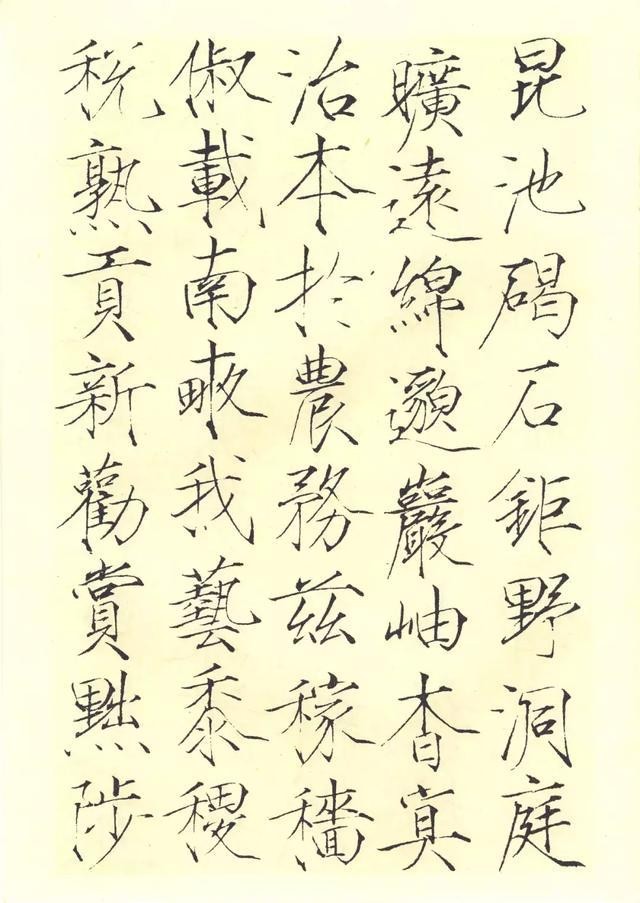 昆池碣石鉅野洞庭
曠遠綿邈巖岫杳冥
治本於農務茲稼穡
俶載南畝我藝黍稷
稅熟貢新勸賞黜陟